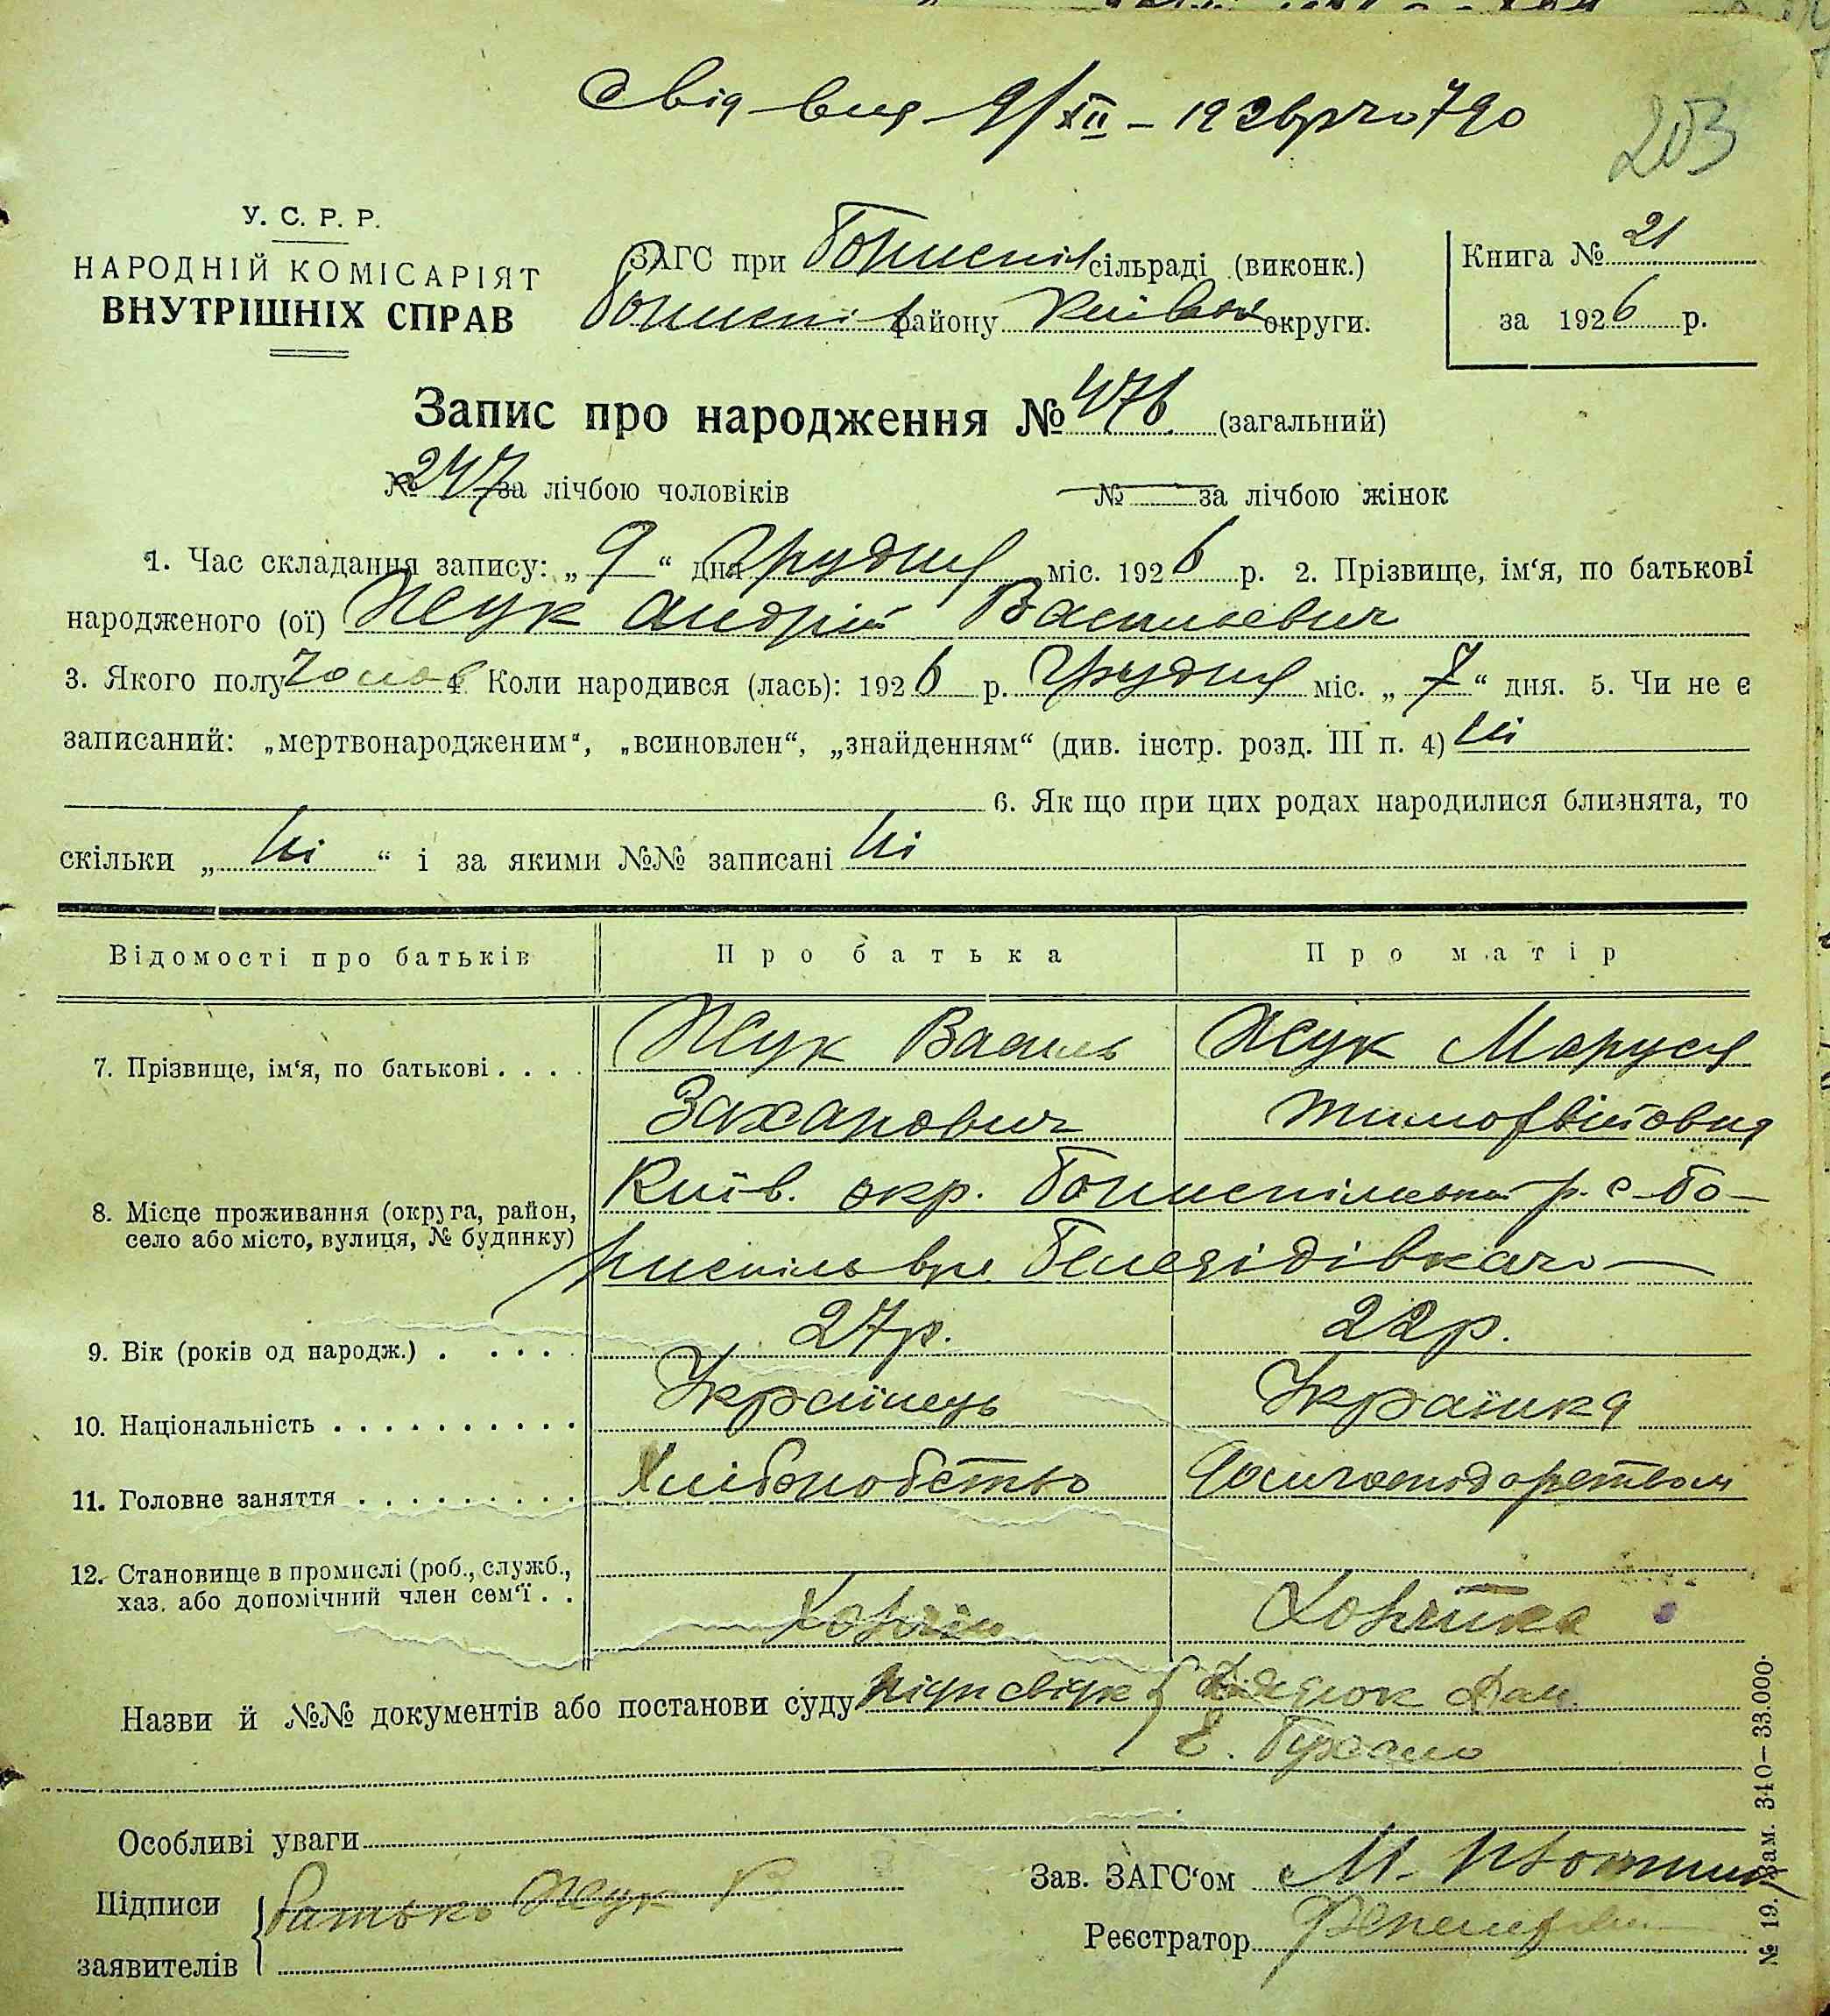 Свід вид 9/XII – 1926р № 790
203
У. С. Р. Р.
НАРОДНІЙ КОМІСАРІЯТ
ВНУТРІШНІХ СПРАВ
ЗАГС при Бориспіл сільраді (виконк.)
Бориспіл району Київськ округи.
Книга № 21
за 1926 р.
Запис про народження № 476 (загальний)
№ 247 за лічбою чоловіків
№ — за лічбою жінок
1. Час складання запису: „ 9 “ дня Грудня міс. 1926 р. 2. Прізвище, ім‘я, по батькові
народженого (ої) Жук Андрій Васильевич
3. Якого полу Чолов 4. Коли народився (лась): 1926 р. Грудня міс. „ 7 “ дня. 5. Чи не є
записаний: „мертвонародженим“, „всиновлен“, „знайденням“ (див. інстр. розд. III п. 4) Ні
6. Як що при цих родах народилися близнята, то
скільки „ Ні “ і за якими №№ записані Ні
Відомості про батьків Про батька Про матір
7. Прізвище, ім‘я, по батькові . . . . Жук Василь Жук Маруся
Захарович Тимофвійовна
8. Місце проживання (округа, район, село або місто, вулиця, № будинку) Київ. окр. Бориспільськ р. с-Бо-
риспіль вул.
9. Вік (років од народж.) . . . . 27р. 22р.
10. Національність . . . . . . . . . . Українець Українка
11. Головне заняття . . . . . . . . . Хліборобство
12. Становище в промислі (роб., служб.,
хаз. або допомічний член сем‘ї . . Хазяїн Хазяйка
Назви й №№ документів або постанови суду
Особливі уваги
Підписи
заявителів
Батько Жук В
Зав. ЗАГС‘ом М.
Реєстратор
№ 19. Зам. 340—33.000.